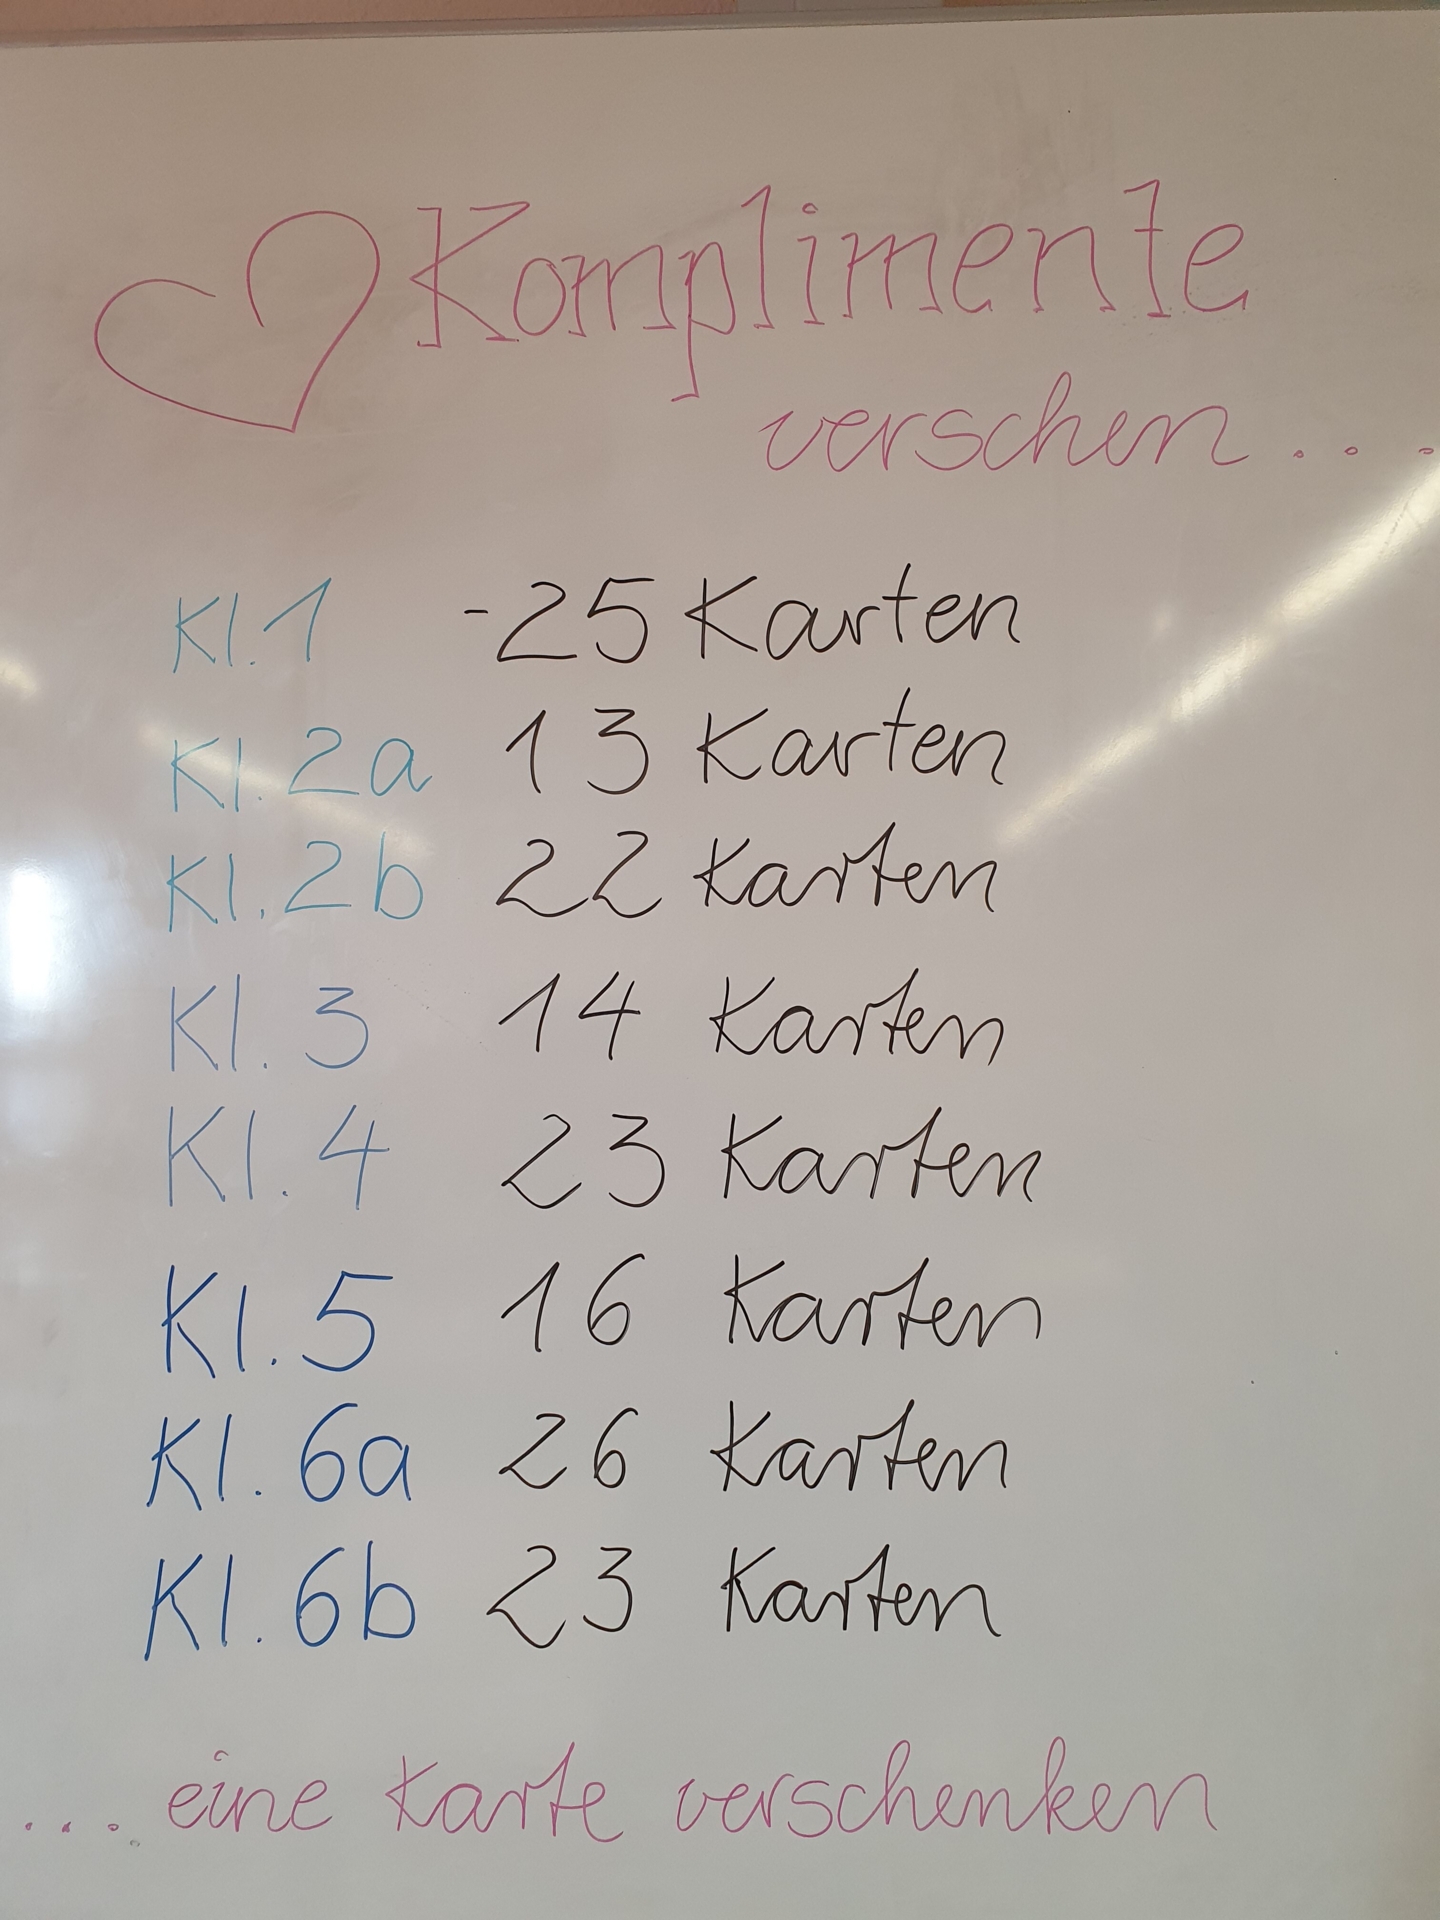 Komplimente
verschen....
Kl. 1 - 25 Karten
Kl. 2a 13 Karten
Kl. 2b 22 Karten
Kl. 3 14 Karten
Kl. 4 23 Karten
Kl. 5 16 Karten
Kl. 6a 26 Karten
Kl. 6b 23 Karten
.... eine Karte verschenken